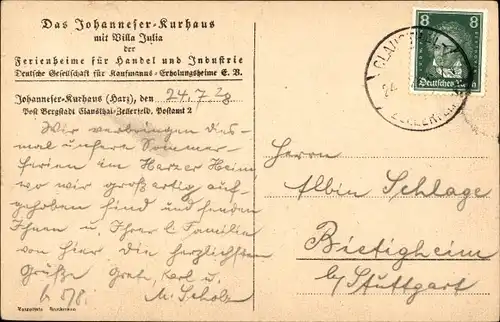 Das Johanneser-Kurhaus
mit Villa Julia
der
Ferienheime für Handel und Industrie
Deutsche Gesellschaft für Kaufmanns-Erholungsheime E. V.
Johanneser-Kurhaus (Harz), den 24.7.28
Post Bergstadt Clausthal-Zellerfeld. Postamt 2
Wir verbringen dies-
mal unsere Sommer-
ferien im Harzer Heim
wo wir großartig auf-
gehoben sind und senden
Ihnen u. Ihrer l. Familie
von hier die herzlichsten
Grüße Karl u.
M. Scholz
8 8
Deutsches Reich
CLAUSTHAL
24
ZELLERFELD
Herrn
Albin Schlage
Bietigheim
b/Stuttgart